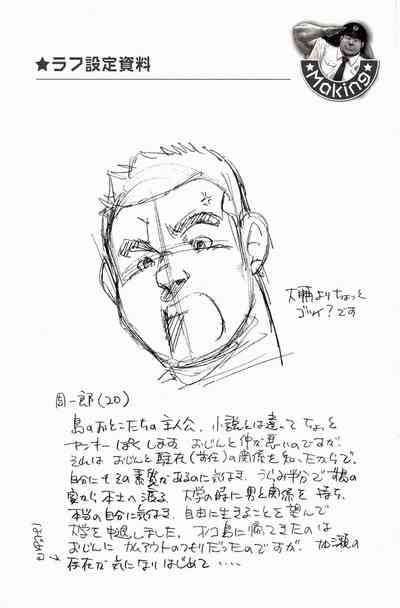 ★ラフ設定資料
★Making★
大輔よりちょっと
ゴツイ?です
周一郎(20)
島のおとこたちの主人公。小説とは違って ちょっと
ヤンキーぽくします おじんと仲が悪いのですが、
それは おじんと駐在(前任)の関係を知ったからで、
自分にもその素質があるのに気付き、うらみ半分で
家から本土へ渡る。大学の時に男と関係を持ち、
本当の自分に気付き、自由に生きることを望んで
大学を中退しました。オコ島に帰ってきたのは
おじんに カムアウトのつもりだったのですが、加瀬の
存在が気になりはじめて・・・・